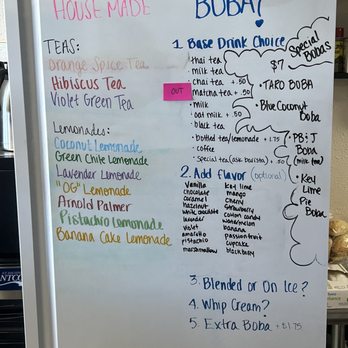 HOUSE MADE
TEAS:
Orange Spice Tea
Hibiscus Tea
Violet Green Tea
Lemonades:
Coconut Lemonade
Green Chile Lemonade
Lavender Lemonade
"OG" Lemonade
Arnold Palmer
Pistachio Lemonade
Banana Cake Lemonade
BOBA!
1. Base Drink Choice
thai tea
milk tea
chai tea + .50
OUT
matcha tea + .50
milk
oat milk + .50
black tea
bottled tea/lemonade + 1.75
coffee
Special tea (ask barista) + .50
2. Add flavor (optional)
Vanilla
chocolate
caramel
hazelnut
white chocolate
lavender
violet
amaretto
pistachio
marshmallow
key lime
mango
cherry
strawberry
cotton candy
watermelon
banana
passionfruit
cupcake
blackberry
3. Blended or On Ice?
4. Whip Cream?
5. Extra Boba + $1.75
Special Bobas
$7
• TARO BOBA
• Blue Coconut
Boba
• PB+J
Boba
(milk tea)
• Key
Lime
Pie
Boba